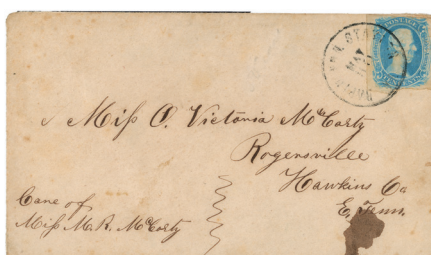 Miss O. Victoria McCarty
Rogersville
Hawkins Co
E. Tenn.
Care of
Miss M. R. McCarty